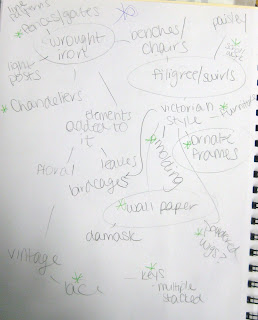 patterns
fences/gates
wrought
iron
benches/
chairs
paisley
light
posts
filigree/swirls
Chandeliers
elements
added to
it
victorian
style
furniture
floral
leaves
birdcages
molding
ornate
frames
wall paper
damask
powdered
wigs?
vintage
lace
keys
multiple
stacked